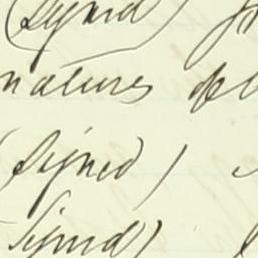 (Signed)
natures del
(Signed)
Signed)